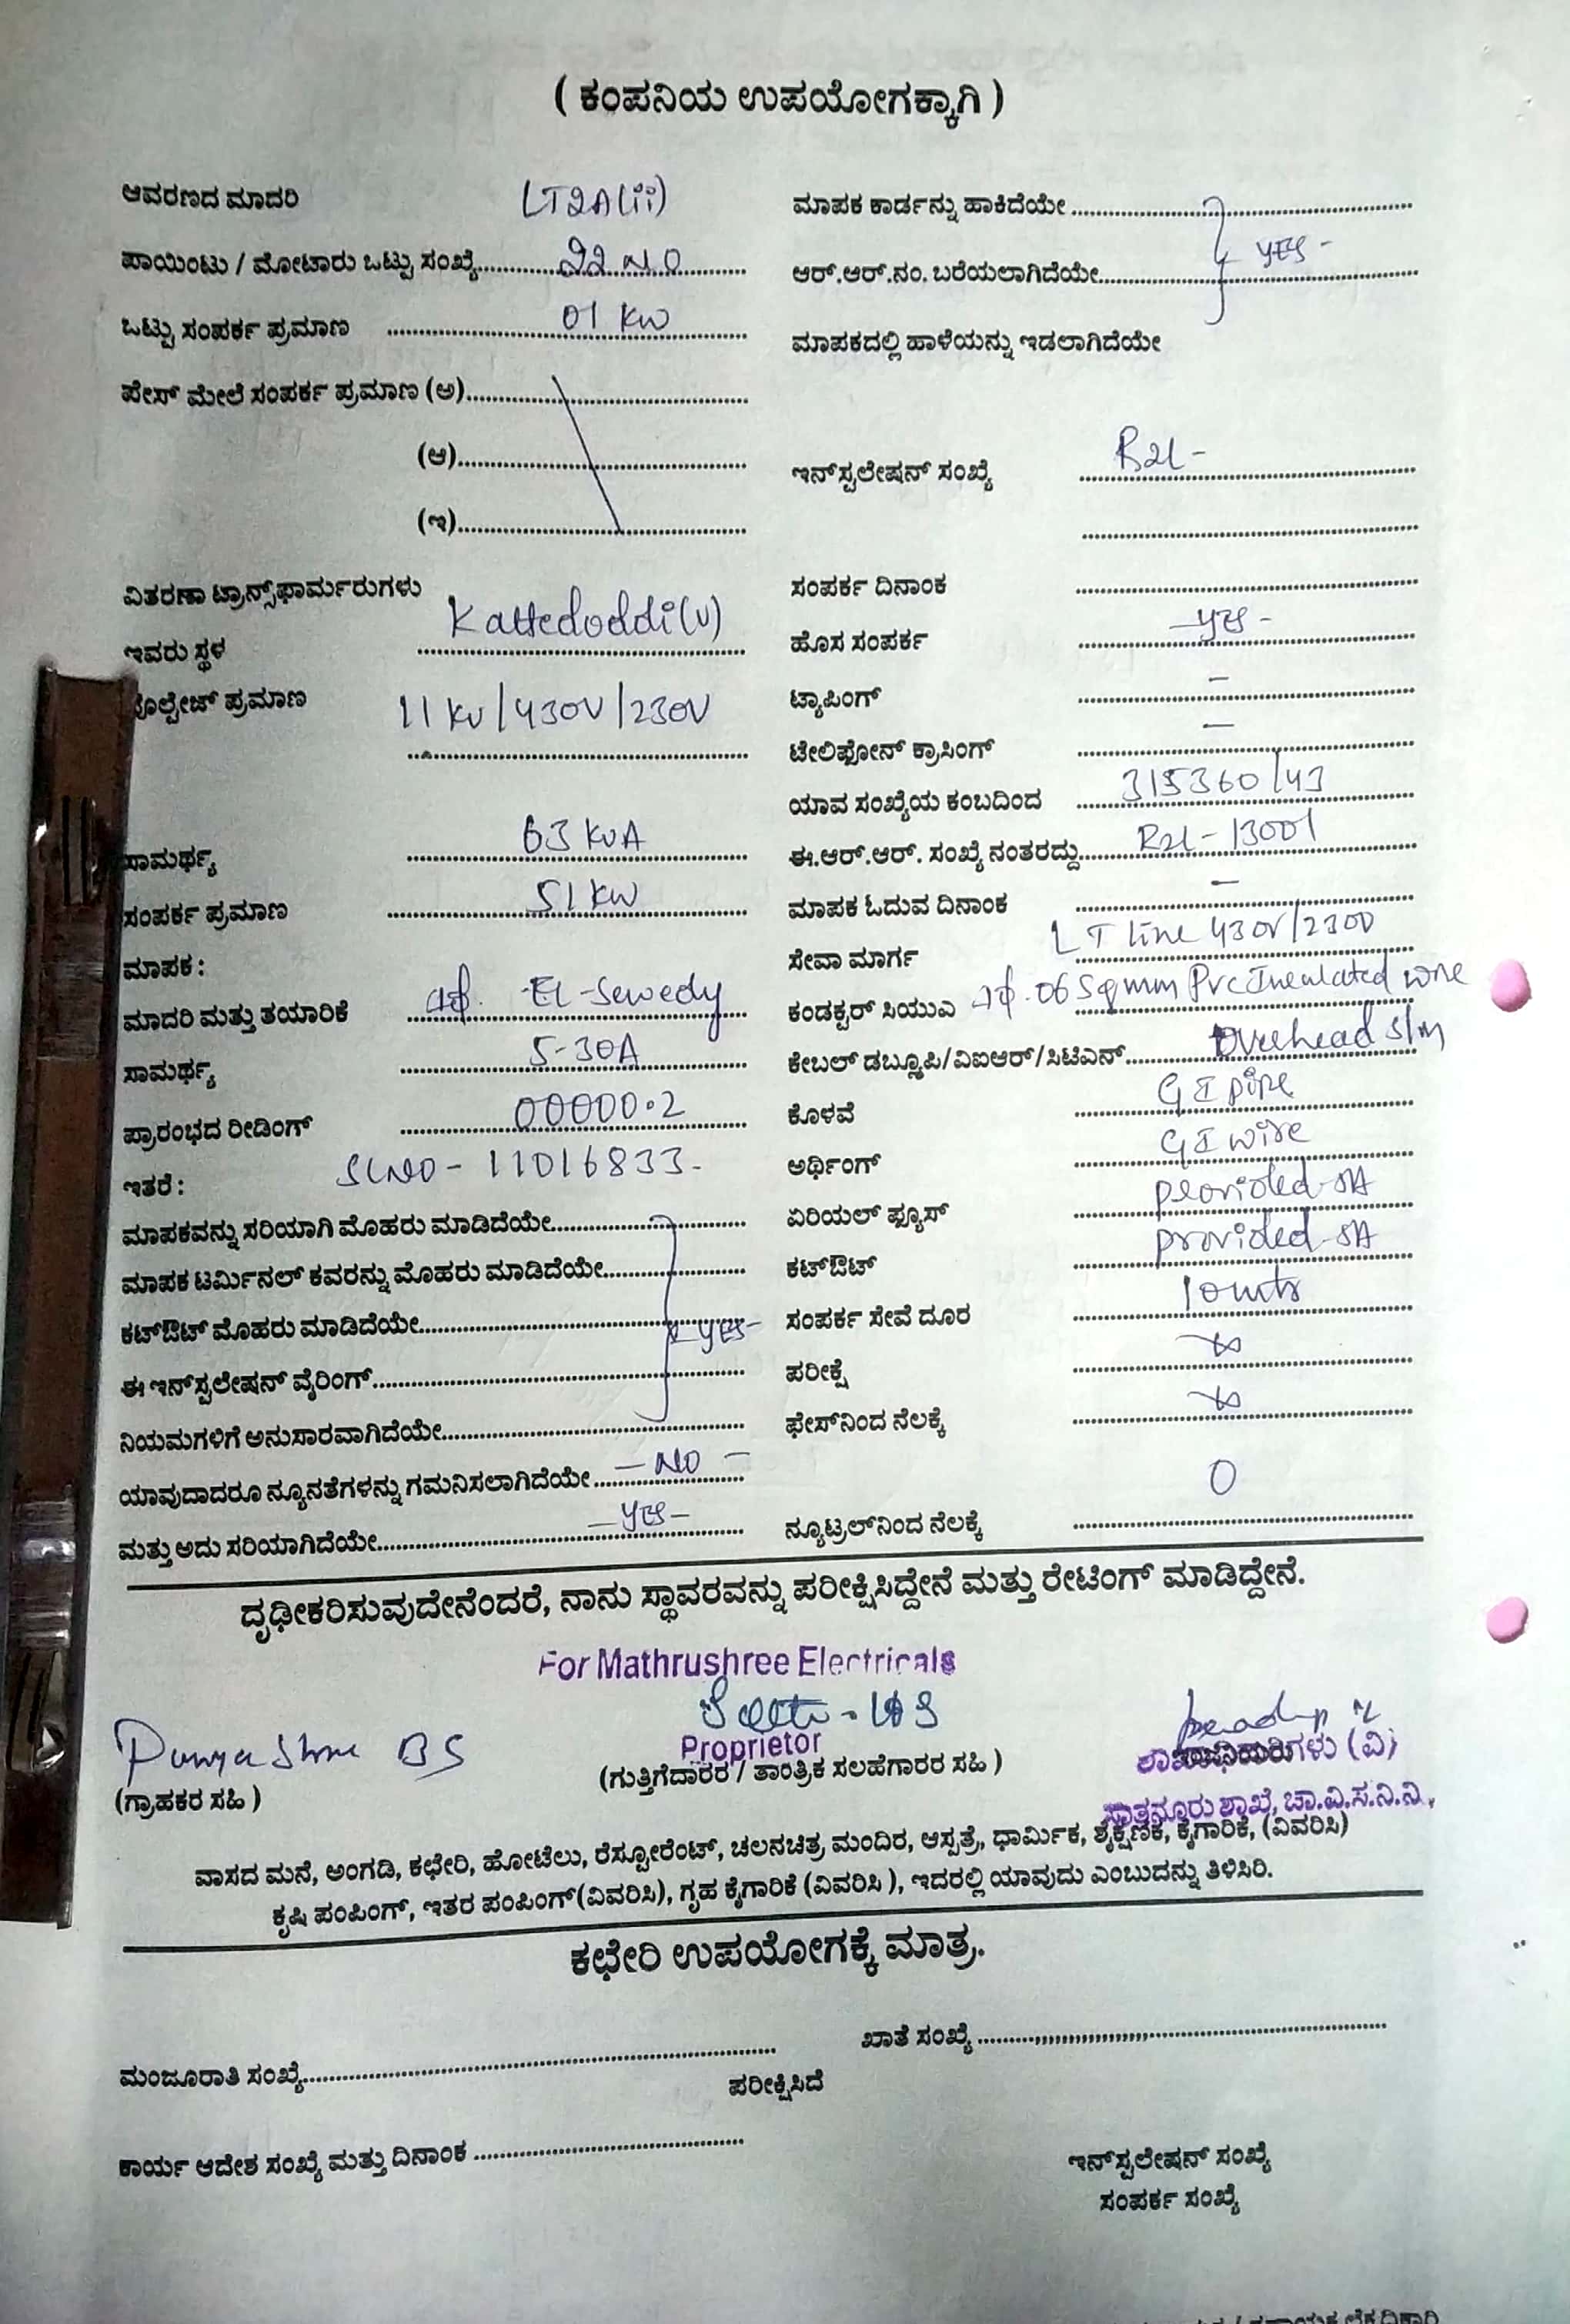 ( ಕಂಪನಿಯ ಉಪಯೋಗಕ್ಕಾಗಿ )
ಆವರಣದ ಮಾದರಿ LT2A(ii)
ಪಾಯಿಂಟು / ಮೋಟಾರು ಒಟ್ಟು ಸಂಖ್ಯೆ
ಒಟ್ಟು ಸಂಪರ್ಕ ಪ್ರಮಾಣ 01 KW
ಪೇಸ್ ಮೇಲೆ ಸಂಪರ್ಕ ಪ್ರಮಾಣ (ಅ)
(ಆ)
(ಇ)
ವಿತರಣಾ ಟ್ರಾನ್ಸ್‌ಫಾರ್ಮರುಗಳು
ಇವರು ಸ್ಥಳ Kattedoddi(V)
ವೋಲ್ಟೇಜ್ ಪ್ರಮಾಣ 11 KV/430V/230V
ಸಾಮರ್ಥ್ಯ 63 KVA
ಸಂಪರ್ಕ ಪ್ರಮಾಣ 51 KW
ಮಾಪಕ :
ಮಾದರಿ ಮತ್ತು ತಯಾರಿಕೆ 1φ. El-Sewedy
ಸಾಮರ್ಥ್ಯ 5-30A
ಪ್ರಾರಂಭದ ರೀಡಿಂಗ್ 00000.2
ಇತರೆ : SLNO - 11016833.
ಮಾಪಕವನ್ನು ಸರಿಯಾಗಿ ಮೊಹರು ಮಾಡಿದೆಯೇ
ಮಾಪಕ ಟರ್ಮಿನಲ್ ಕವರನ್ನು ಮೊಹರು ಮಾಡಿದೆಯೇ
ಕಟ್‌ಔಟ್ ಮೊಹರು ಮಾಡಿದೆಯೇ YES-
ಈ ಇನ್‌ಸ್ಟಲೇಷನ್ ವೈರಿಂಗ್
ನಿಯಮಗಳಿಗೆ ಅನುಸಾರವಾಗಿದೆಯೇ
ಯಾವುದಾದರೂ ನ್ಯೂನತೆಗಳನ್ನು ಗಮನಿಸಲಾಗಿದೆಯೇ - NO -
ಮತ್ತು ಅದು ಸರಿಯಾಗಿದೆಯೇ - YES -
ಮಾಪಕ ಕಾರ್ಡನ್ನು ಹಾಕಿದೆಯೇ
ಆರ್.ಆರ್.ನಂ. ಬರೆಯಲಾಗಿದೆಯೇ YES -
ಮಾಪಕದಲ್ಲಿ ಹಾಳೆಯನ್ನು ಇಡಲಾಗಿದೆಯೇ
ಇನ್‌ಸ್ಟಲೇಷನ್ ಸಂಖ್ಯೆ R2L -
ಸಂಪರ್ಕ ದಿನಾಂಕ
ಹೊಸ ಸಂಪರ್ಕ - YES -
ಟ್ಯಾಪಿಂಗ್ -
ಟೇಲಿಫೋನ್ ಕ್ರಾಸಿಂಗ್ -
ಯಾವ ಸಂಖ್ಯೆಯ ಕಂಬದಿಂದ 315360/43
ಈ.ಆರ್.ಆರ್. ಸಂಖ್ಯೆ ನಂತರದ್ದು R2L - 13001
ಮಾಪಕ ಓದುವ ದಿನಾಂಕ -
ಸೇವಾ ಮಾರ್ಗ LT line 430V/230V
ಕಂಡಕ್ಟರ್ ಸಿಯುಎ 1φ.06 Sqmm Pvc Insulated wire
ಕೇಬಲ್ ಡಬ್ಲ್ಯೂಪಿ/ವಿಐಆರ್/ಸಿಟಿಎನ್ Overhead S/M
ಕೊಳವೆ GI pipe
ಅರ್ಥಿಂಗ್ GI wire
ಏರಿಯಲ್ ಫ್ಯೂಸ್ provided-5A
ಕಟ್‌ಔಟ್ provided-5A
ಸಂಪರ್ಕ ಸೇವೆ ದೂರ 10mts
ಪರೀಕ್ಷೆ ∞
ಫೇಸ್‌ನಿಂದ ನೆಲಕ್ಕೆ ∞
ನ್ಯೂಟ್ರಲ್‌ನಿಂದ ನೆಲಕ್ಕೆ 0
ದೃಢೀಕರಿಸುವುದೇನೆಂದರೆ, ನಾನು ಸ್ಥಾವರವನ್ನು ಪರೀಕ್ಷಿಸಿದ್ದೇನೆ ಮತ್ತು ರೇಟಿಂಗ್ ಮಾಡಿದ್ದೇನೆ.
For Mathrushree Electricals
Punyashree BS
Proprietor
(ಗ್ರಾಹಕರ ಸಹಿ )
(ಗುತ್ತಿಗೆದಾರರ / ತಾಂತ್ರಿಕ ಸಲಹೆಗಾರರ ಸಹಿ )
ಸಾತನೂರು ಶಾಖೆ, ಚಾ.ವಿ.ಸ.ನಿ.ನಿ.,
ವಾಸದ ಮನೆ, ಅಂಗಡಿ, ಕಛೇರಿ, ಹೋಟೆಲು, ರೆಸ್ಟೋರೆಂಟ್, ಚಲನಚಿತ್ರ ಮಂದಿರ, ಆಸ್ಪತ್ರೆ, ಧಾರ್ಮಿಕ, ಶೈಕ್ಷಣಿಕ, ಕೈಗಾರಿಕೆ, (ವಿವರಿಸಿ)
ಕೃಷಿ ಪಂಪಿಂಗ್, ಇತರ ಪಂಪಿಂಗ್(ವಿವರಿಸಿ), ಗೃಹ ಕೈಗಾರಿಕೆ (ವಿವರಿಸಿ ), ಇದರಲ್ಲಿ ಯಾವುದು ಎಂಬುದನ್ನು ತಿಳಿಸಿರಿ.
ಕಛೇರಿ ಉಪಯೋಗಕ್ಕೆ ಮಾತ್ರ.
ಖಾತೆ ಸಂಖ್ಯೆ
ಮಂಜೂರಾತಿ ಸಂಖ್ಯೆ
ಪರೀಕ್ಷಿಸಿದೆ
ಕಾರ್ಯ ಆದೇಶ ಸಂಖ್ಯೆ ಮತ್ತು ದಿನಾಂಕ
ಇನ್‌ಸ್ಟಲೇಷನ್ ಸಂಖ್ಯೆ
ಸಂಪರ್ಕ ಸಂಖ್ಯೆ